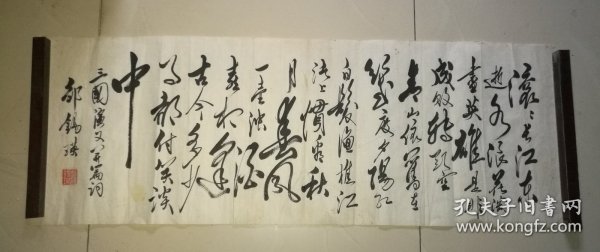 滚滚长江东
逝水浪花淘
尽英雄是非
成败转头空
青山依旧在
几度夕阳红
白发渔樵江
渚上惯看秋
月春风
一壶浊酒
喜相逢
古今多少
事都付笑谈
中
三國演义开篇词
邵錫瑛
孔夫子旧书网
www.kongfz.com